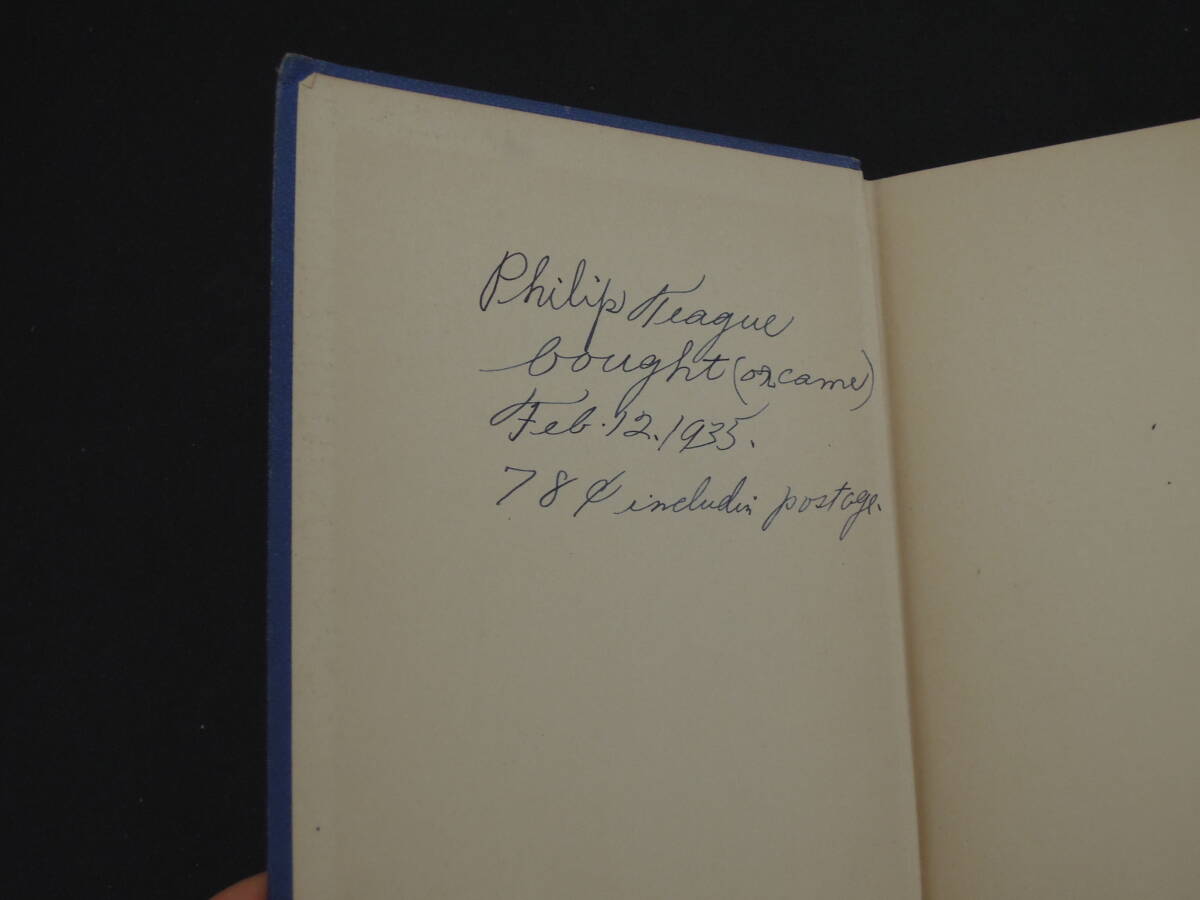 Philip Teague
bought (or came)
Feb. 12. 1935.
78 ¢ includin postage.